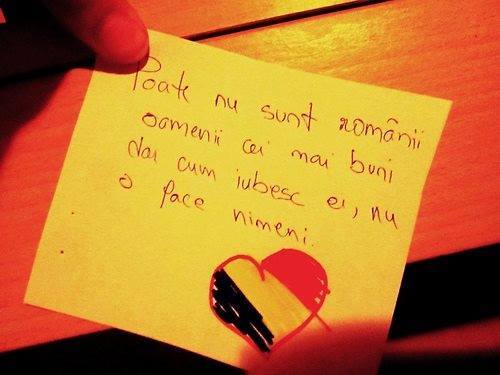 Poate nu sunt românii
oamenii cei mai buni
dar cum iubesc ei, nu
o face nimeni.